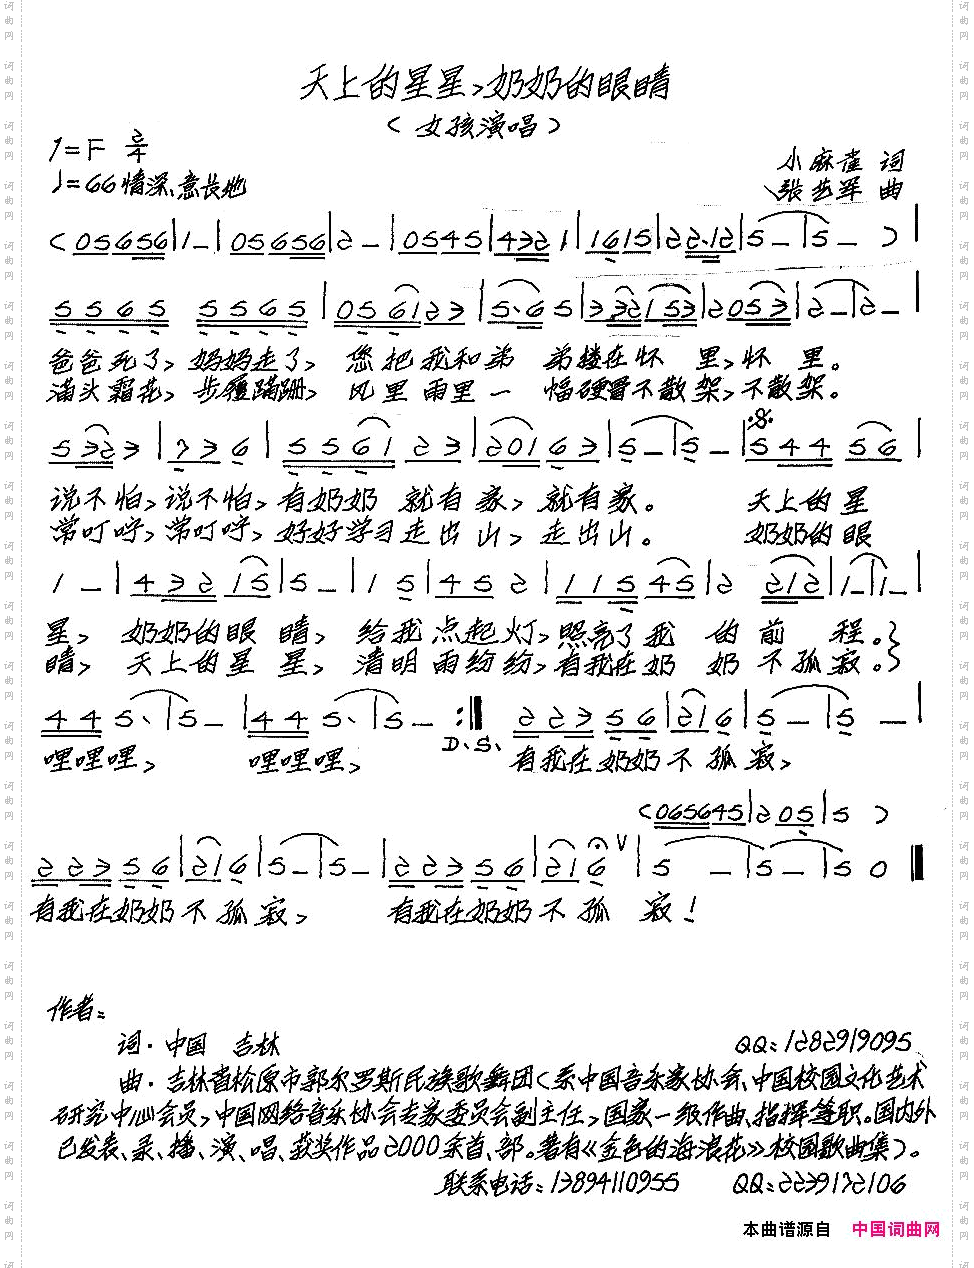 天上的星星，奶奶的眼睛
（女孩演唱）
1=F 2/4
♩=66 情深、意长地
小麻雀 词
张艺军 曲
（05656|1－|05656|2－|0545|4321|1615|22·12|5－|5－）|
5565 5565|056123|5·65|332153|2053|2－|2－|
爸爸死了，妈妈走了， 您把我和弟 弟搂在怀 里，怀 里。
满头霜花，步履蹒跚， 风里雨里一 幅硬骨不散架，不散架。
5323|736|5561 23|20163|5－|5－|544 56|
说不怕，说不怕，有奶奶 就有家，就有家。 天上的星
常叮咛，常叮咛，好好学习走出山，走出山。 奶奶的眼
1－|432 15|5－|15|452|115 45|2 212|1－|1－|
星， 奶奶的眼 睛， 给我点起灯，照亮了我 的前 程。
睛， 天上的星 星， 清明雨纷纷，有我在奶 奶不孤寂。
445、|5－|445、|5－:‖ 22356|216|5－|5－|
D.S.
哩哩哩， 哩哩哩， 有我在奶奶不孤寂，
（065645|205|5 ）
22356|216|5－|5－|22356|216∨|5 －|5－|50‖
有我在奶奶不孤寂， 有我在奶奶不孤 寂！
作者：
词·中国 吉林 QQ：1282919095
曲·吉林省松原市郭尔罗斯民族歌舞团（系中国音乐家协会、中国校园文化艺术
研究中心会员，中国网络音乐协会专家委员会副主任，国家一级作曲、指挥等职。国内外
已发表、录、播、演、唱、获奖作品2000余首、部。著有《金色的海浪花》校园歌曲集）。
联系电话：13894110955 QQ：2239172106
本曲谱源自 中国词曲网